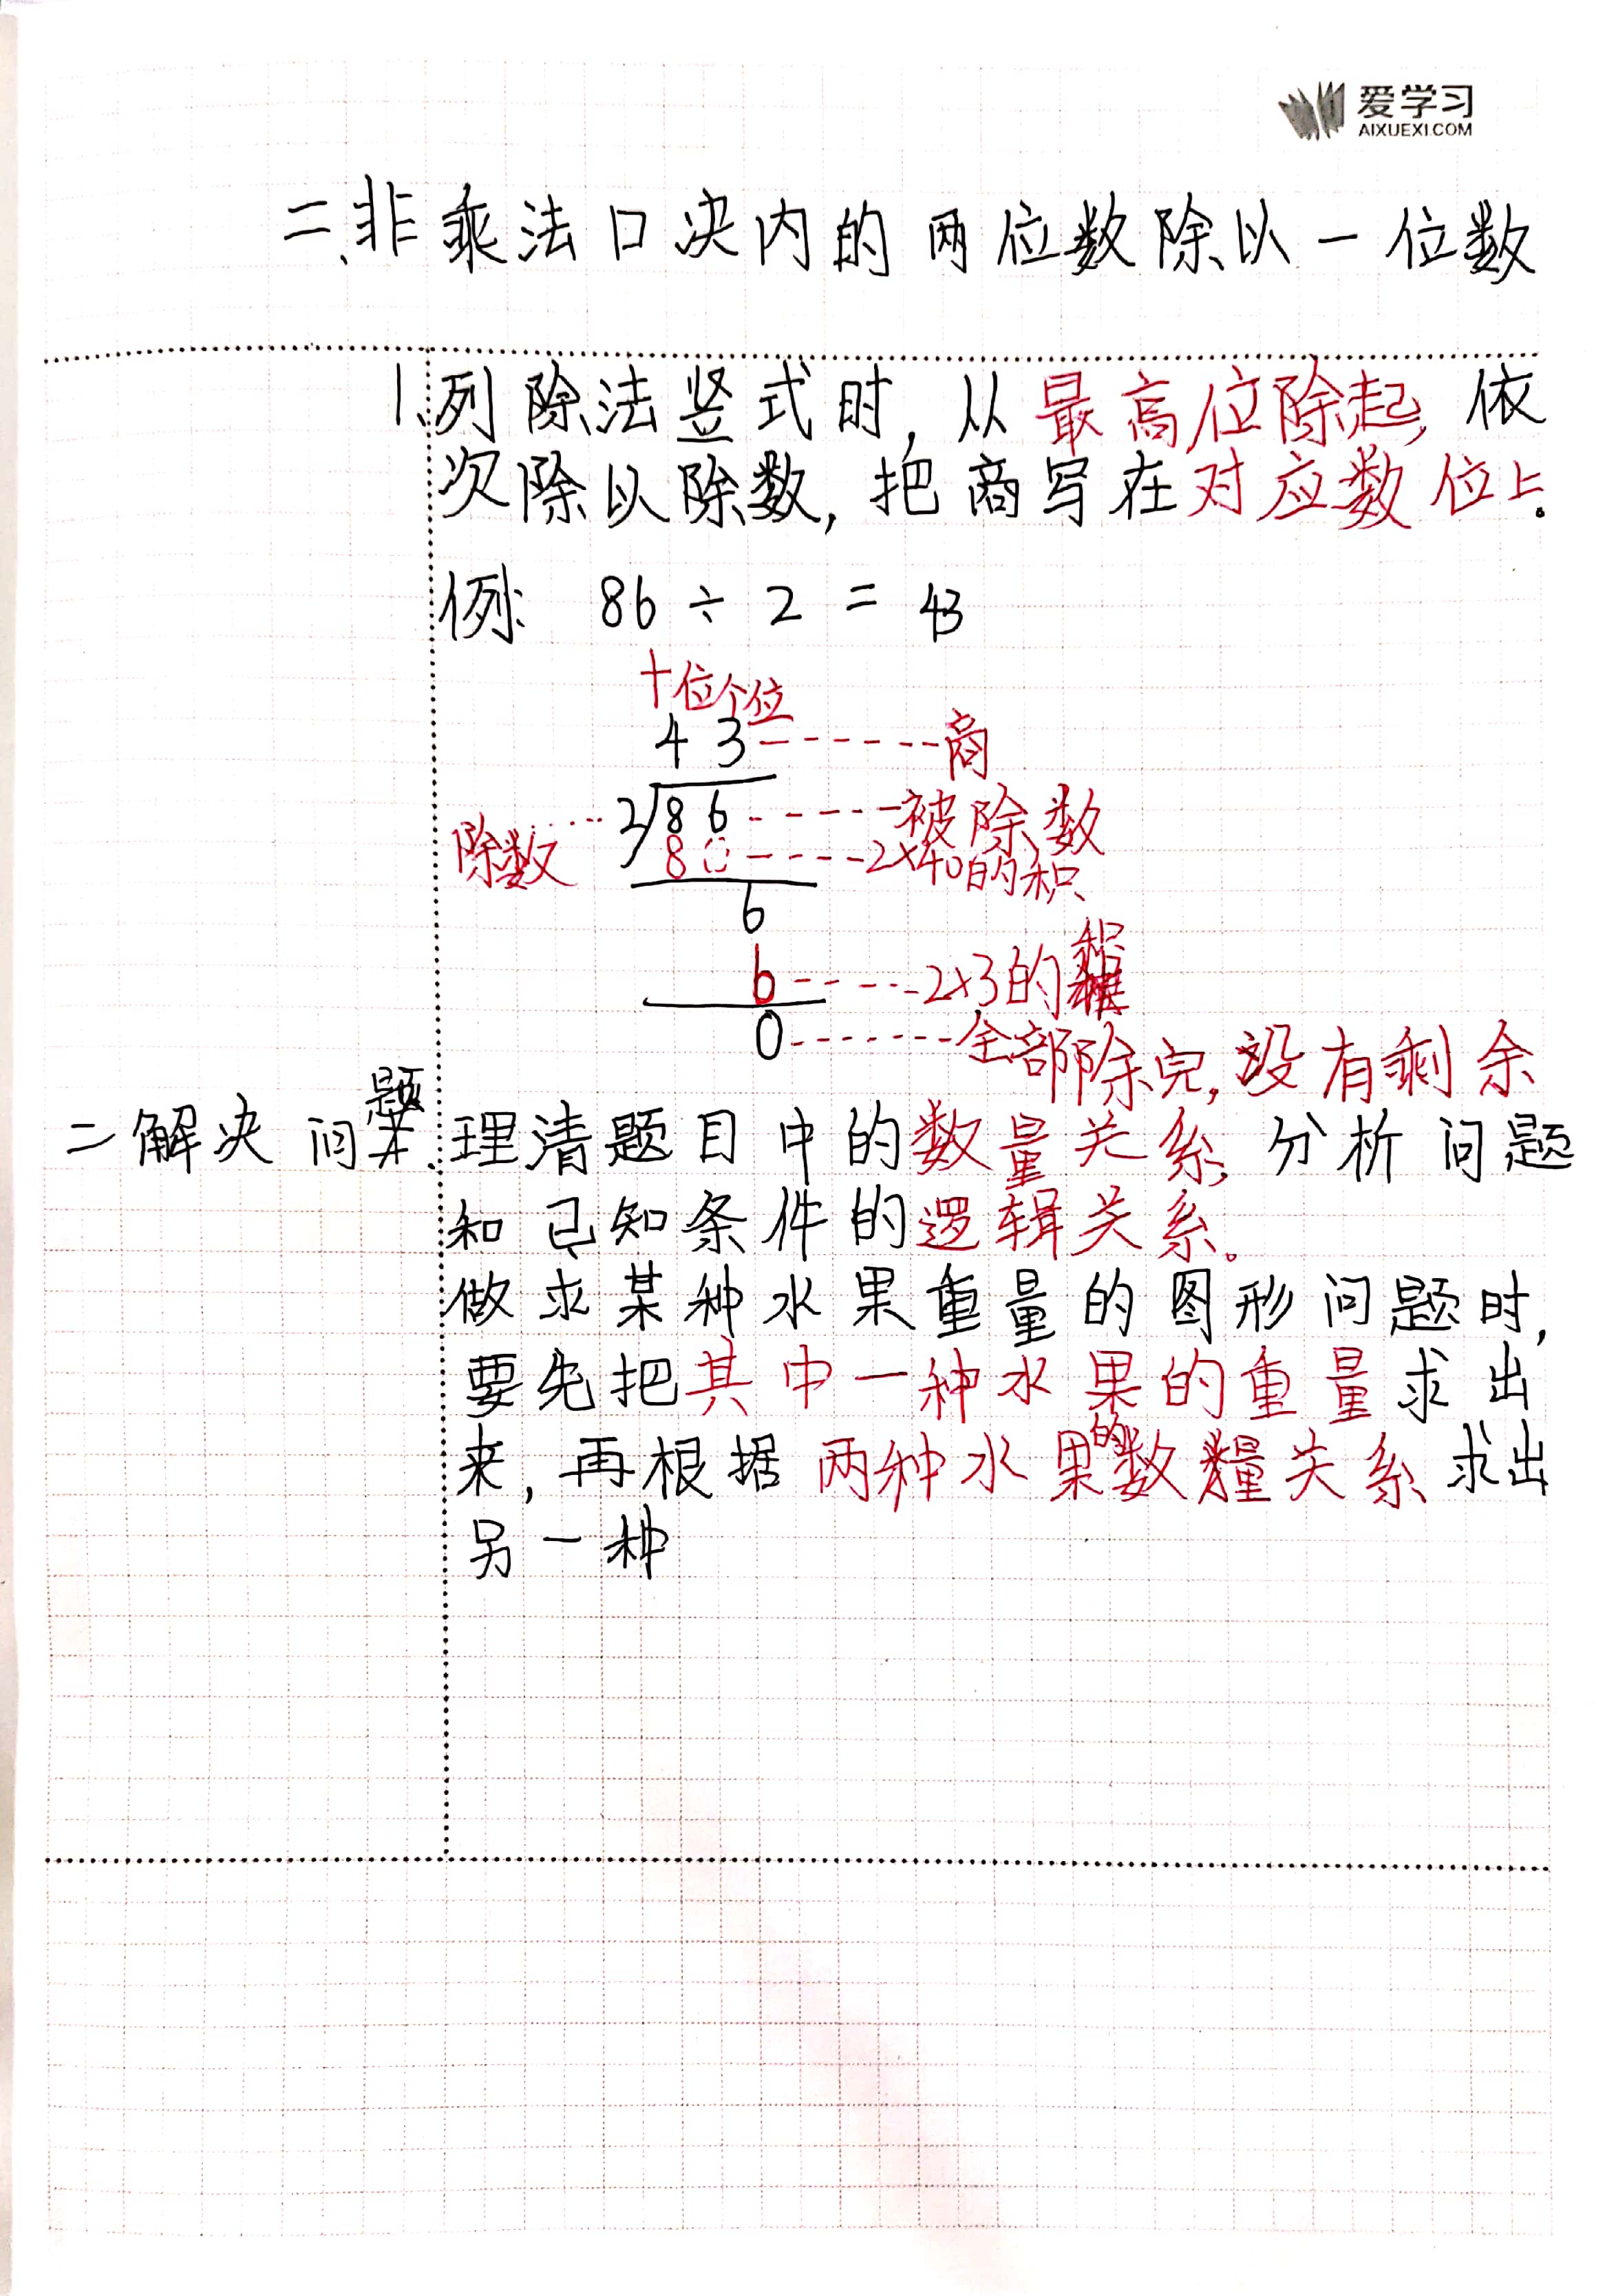 爱学习
AIXUEXI.COM
二、非乘法口决内的两位数除以一位数
1、列除法竖式时,从最高位除起,依
次除以除数,把商写在对应数位上。
例: 86 ÷ 2 = 43
十位个位
4 3 ------商
2 8 6 -----被除数
除数
8 0 ----2×40的积
6
6 -----2×3的积
0 -------全部除完,没有剩余
二解决问题
理清题目中的数量关系,分析问题
和已知条件的逻辑关系。
做求某种水果重量的图形问题时,
要先把其中一种水果的重量求出
来,再根据两种水果的数量关系求出
另一种